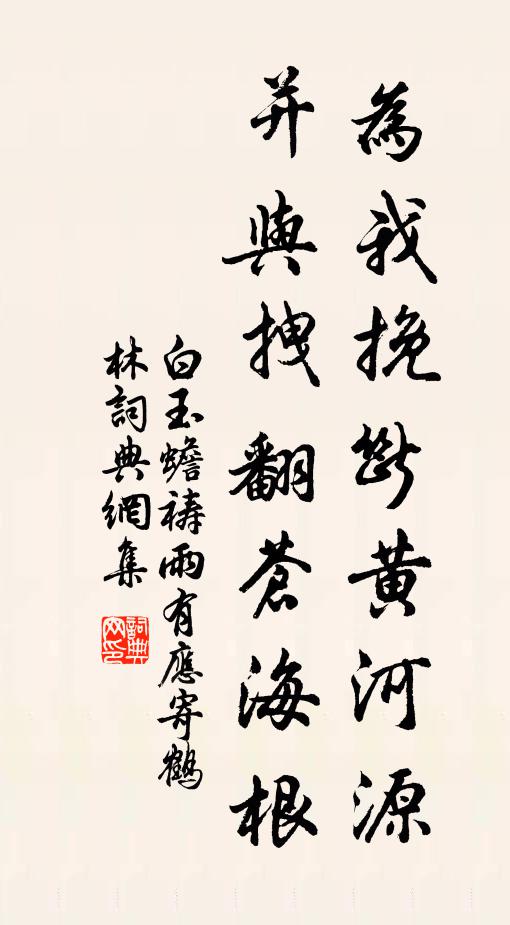 為我挽斷黃河源
并與拽翻蒼海根
白玉蟾禱雨有應寄鶴
林詞典網集
詞典
网印